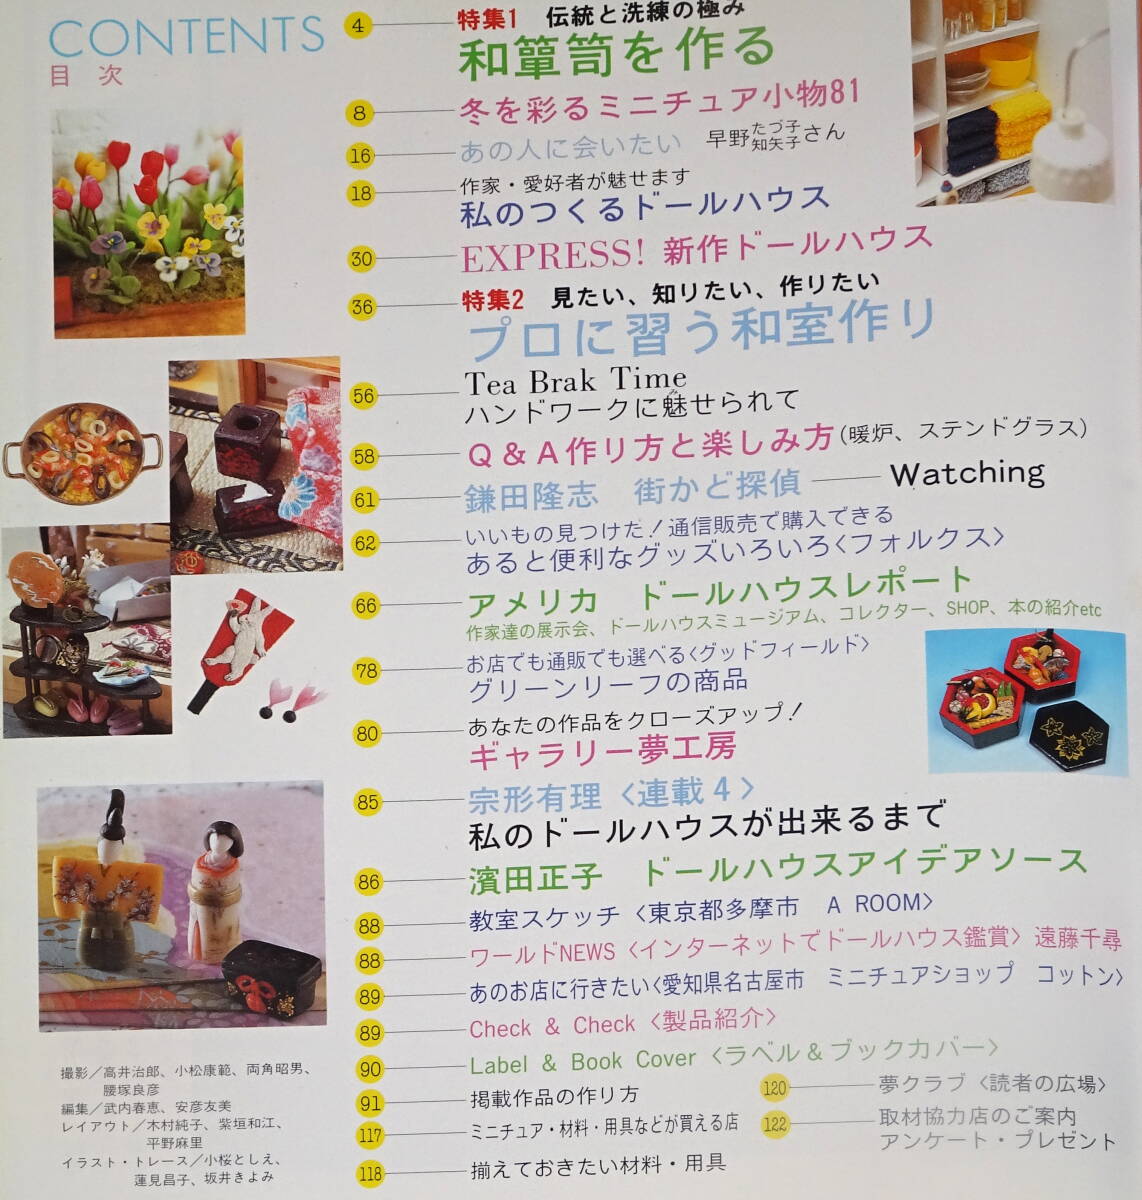 CONTENTS
目 次
4 特集1 伝統と洗練の極み
和箪笥を作る
8 冬を彩るミニチュア小物81
16 あの人に会いたい 早野たづ子 知矢子さん
18 作家・愛好者が魅せます
私のつくるドールハウス
30 EXPRESS! 新作ドールハウス
36 特集2 見たい、知りたい、作りたい
プロに習う和室作り
56 Tea Brak Time
ハンドワークに魅せられて
58 Q&A作り方と楽しみ方(暖炉、ステンドグラス)
61 鎌田隆志 街かど探偵 Watching
62 いいもの見つけた!通信販売で購入できる
あると便利なグッズいろいろ〈フォルクス〉
66 アメリカ ドールハウスレポート
作家達の展示会、ドールハウスミュージアム、コレクター、SHOP、本の紹介etc
78 お店でも通販でも選べる〈グッドフィールド〉
グリーンリーフの商品
80 あなたの作品をクローズアップ!
ギャラリー夢工房
85 宗形有理〈連載4〉
私のドールハウスが出来るまで
86 濱田正子 ドールハウスアイデアソース
88 教室スケッチ〈東京都多摩市 A ROOM〉
88 ワールドNEWS〈インターネットでドールハウス鑑賞〉遠藤千尋
89 あのお店に行きたい〈愛知県名古屋市 ミニチュアショップ コットン〉
89 Check & Check〈製品紹介〉
90 Label & Book Cover〈ラベル&ブックカバー〉
91 掲載作品の作り方
117 ミニチュア・材料・用具などが買える店
118 揃えておきたい材料・用具
120 夢クラブ〈読者の広場〉
122 取材協力店のご案内
アンケート・プレゼント
撮影/高井治郎、小松康範、両角昭男、
腰塚良彦
編集/武内春恵、安彦友美
レイアウト/木村純子、紫垣和江、
平野麻里
イラスト・トレース/小桜としえ、
蓮見昌子、坂井きよみ